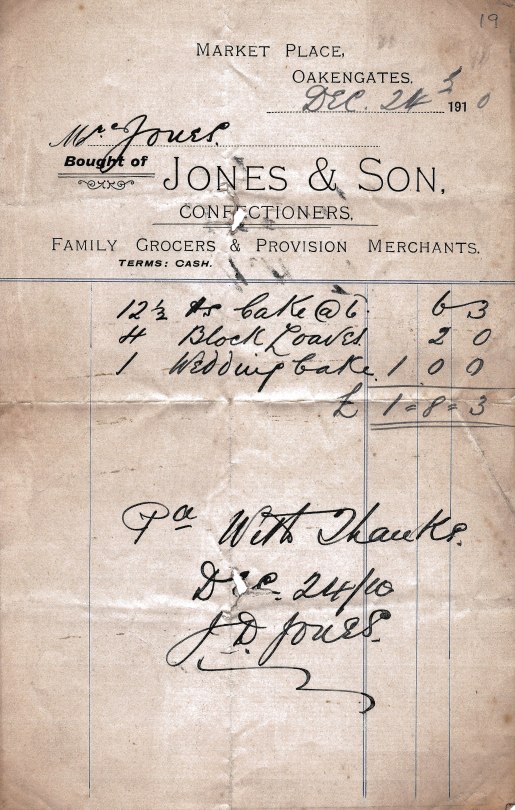 19
MARKET PLACE,
OAKENGATES.
DEC. 24 1910
Mr Jones.
Bought of
JONES & SON,
CONFECTIONERS,
FAMILY GROCERS & PROVISION MERCHANTS.
TERMS: CASH.
12½ lbs Cake @ 6. 6 3
4 Block Loaves 2 0
1 Wedding Cake. 1 0 0
£ 1=8=3
Pd With Thanks.
Dec. 24/10
J. D. Jones.